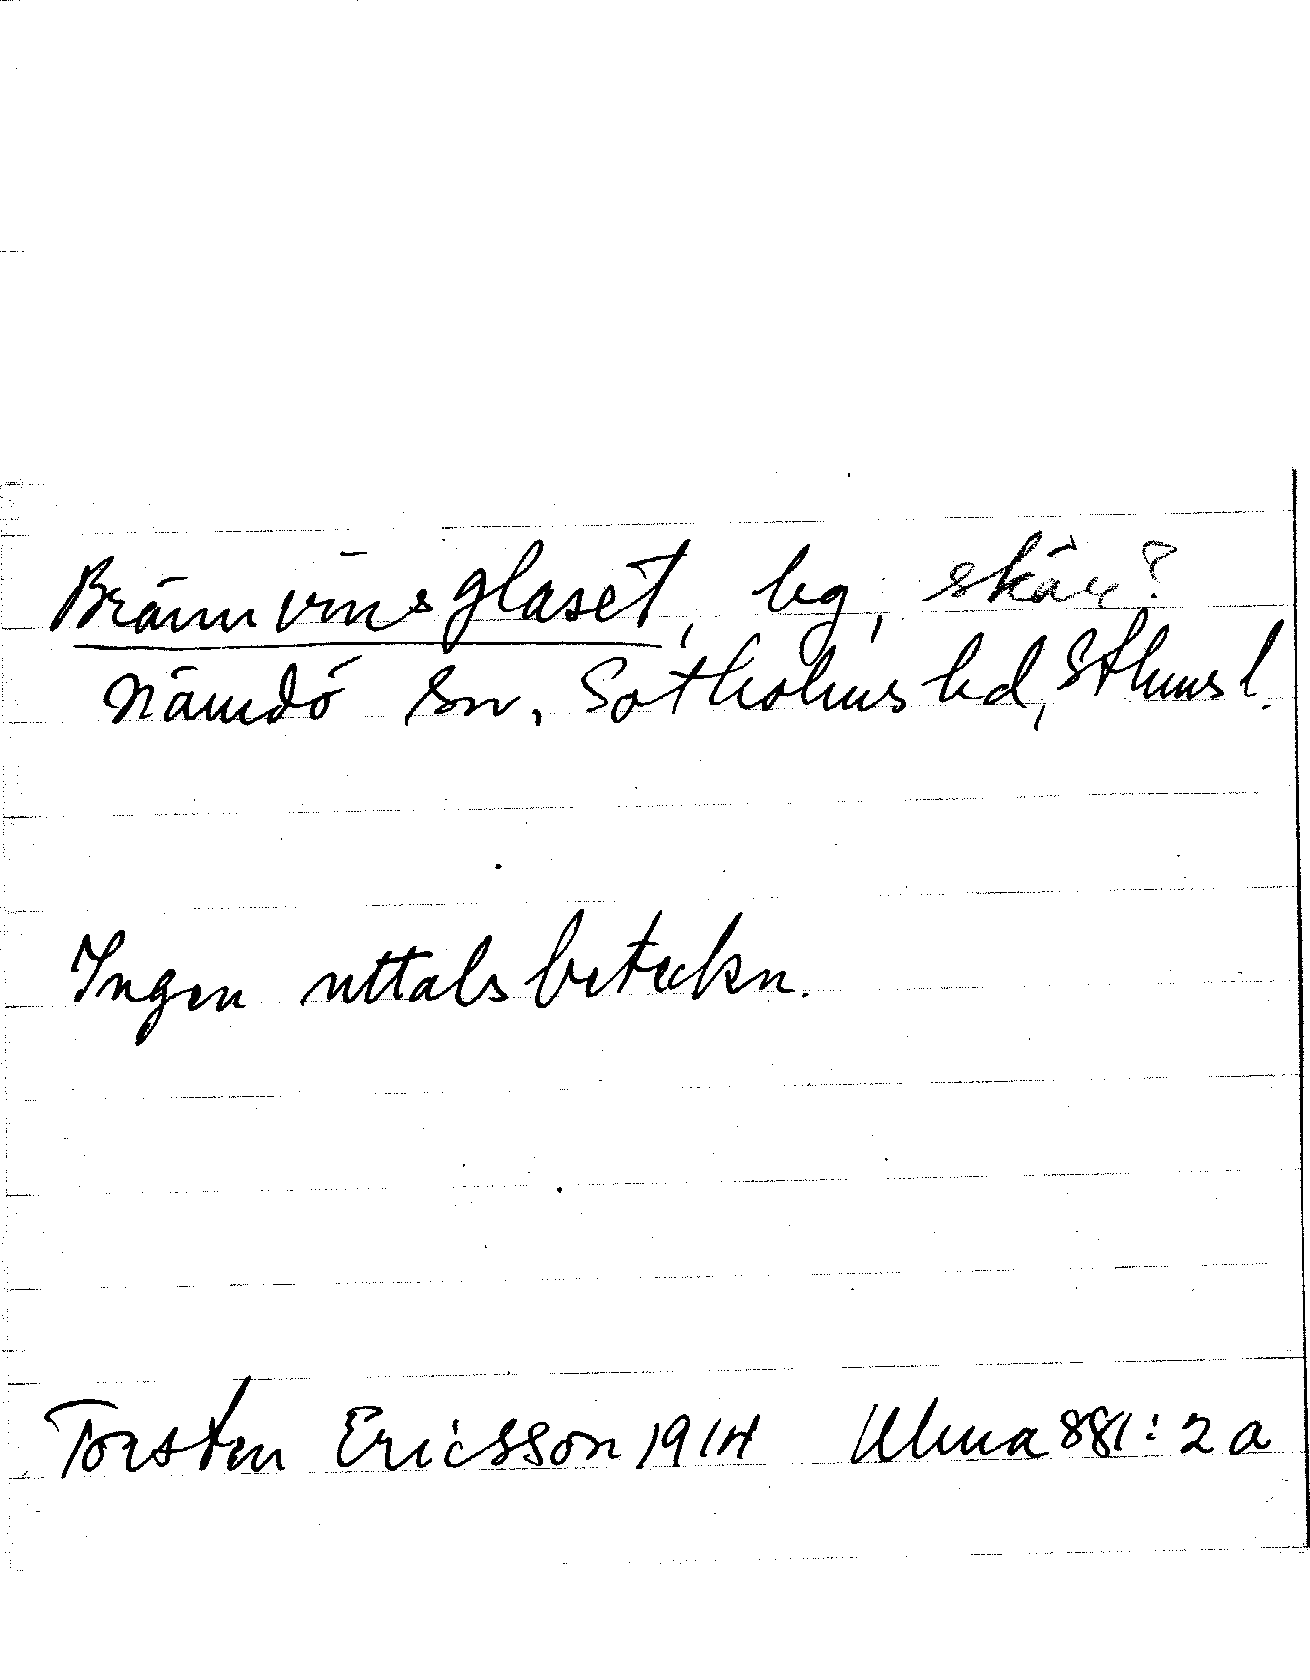 Brännvinsglaset, hg, skär?
Nämdö sn, Sotholms hd, Sthms l.
Ingen uttalsbeteckn.
Torsten Ericsson 1914 Ulma 881:2a